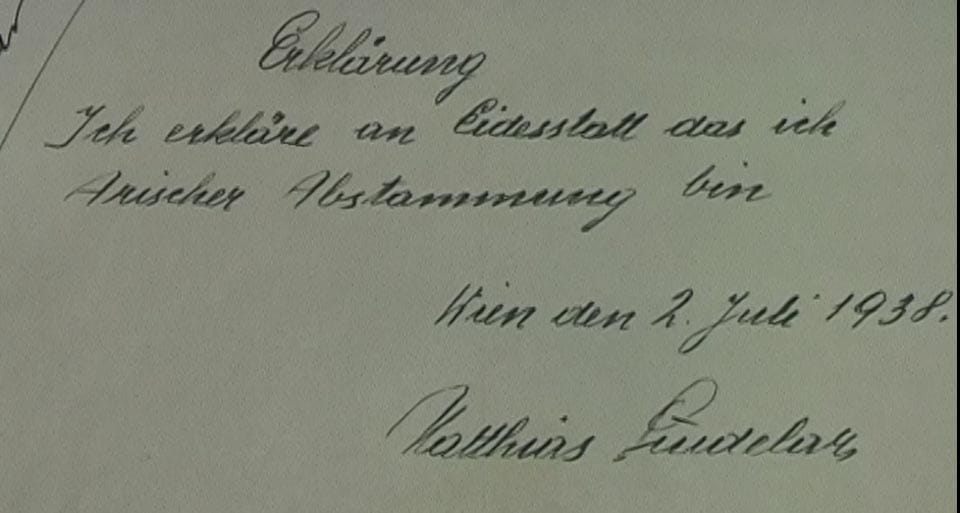 Erklärung
Ich erkläre an Eidesstatt das ich
Arischer Abstammung bin
Wien den 2. Juli 1938.
Matthias Sindelar